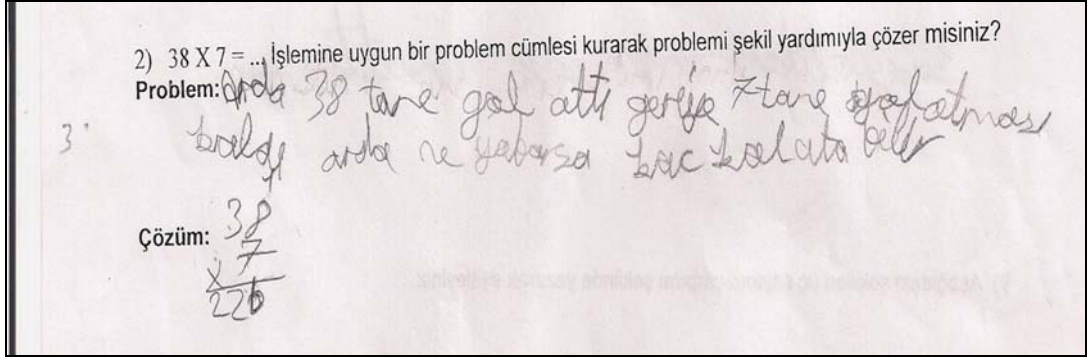 2) 38 X 7 = ... İşlemine uygun bir problem cümlesi kurarak problemi şekil yardımıyla çözer misiniz?
Problem: Arda 38 tane gol attı geriya 7 tane gol atması
3
kaldı arda ne yabarsa kac kol ata bilir
Çözüm: 38
7
x
226